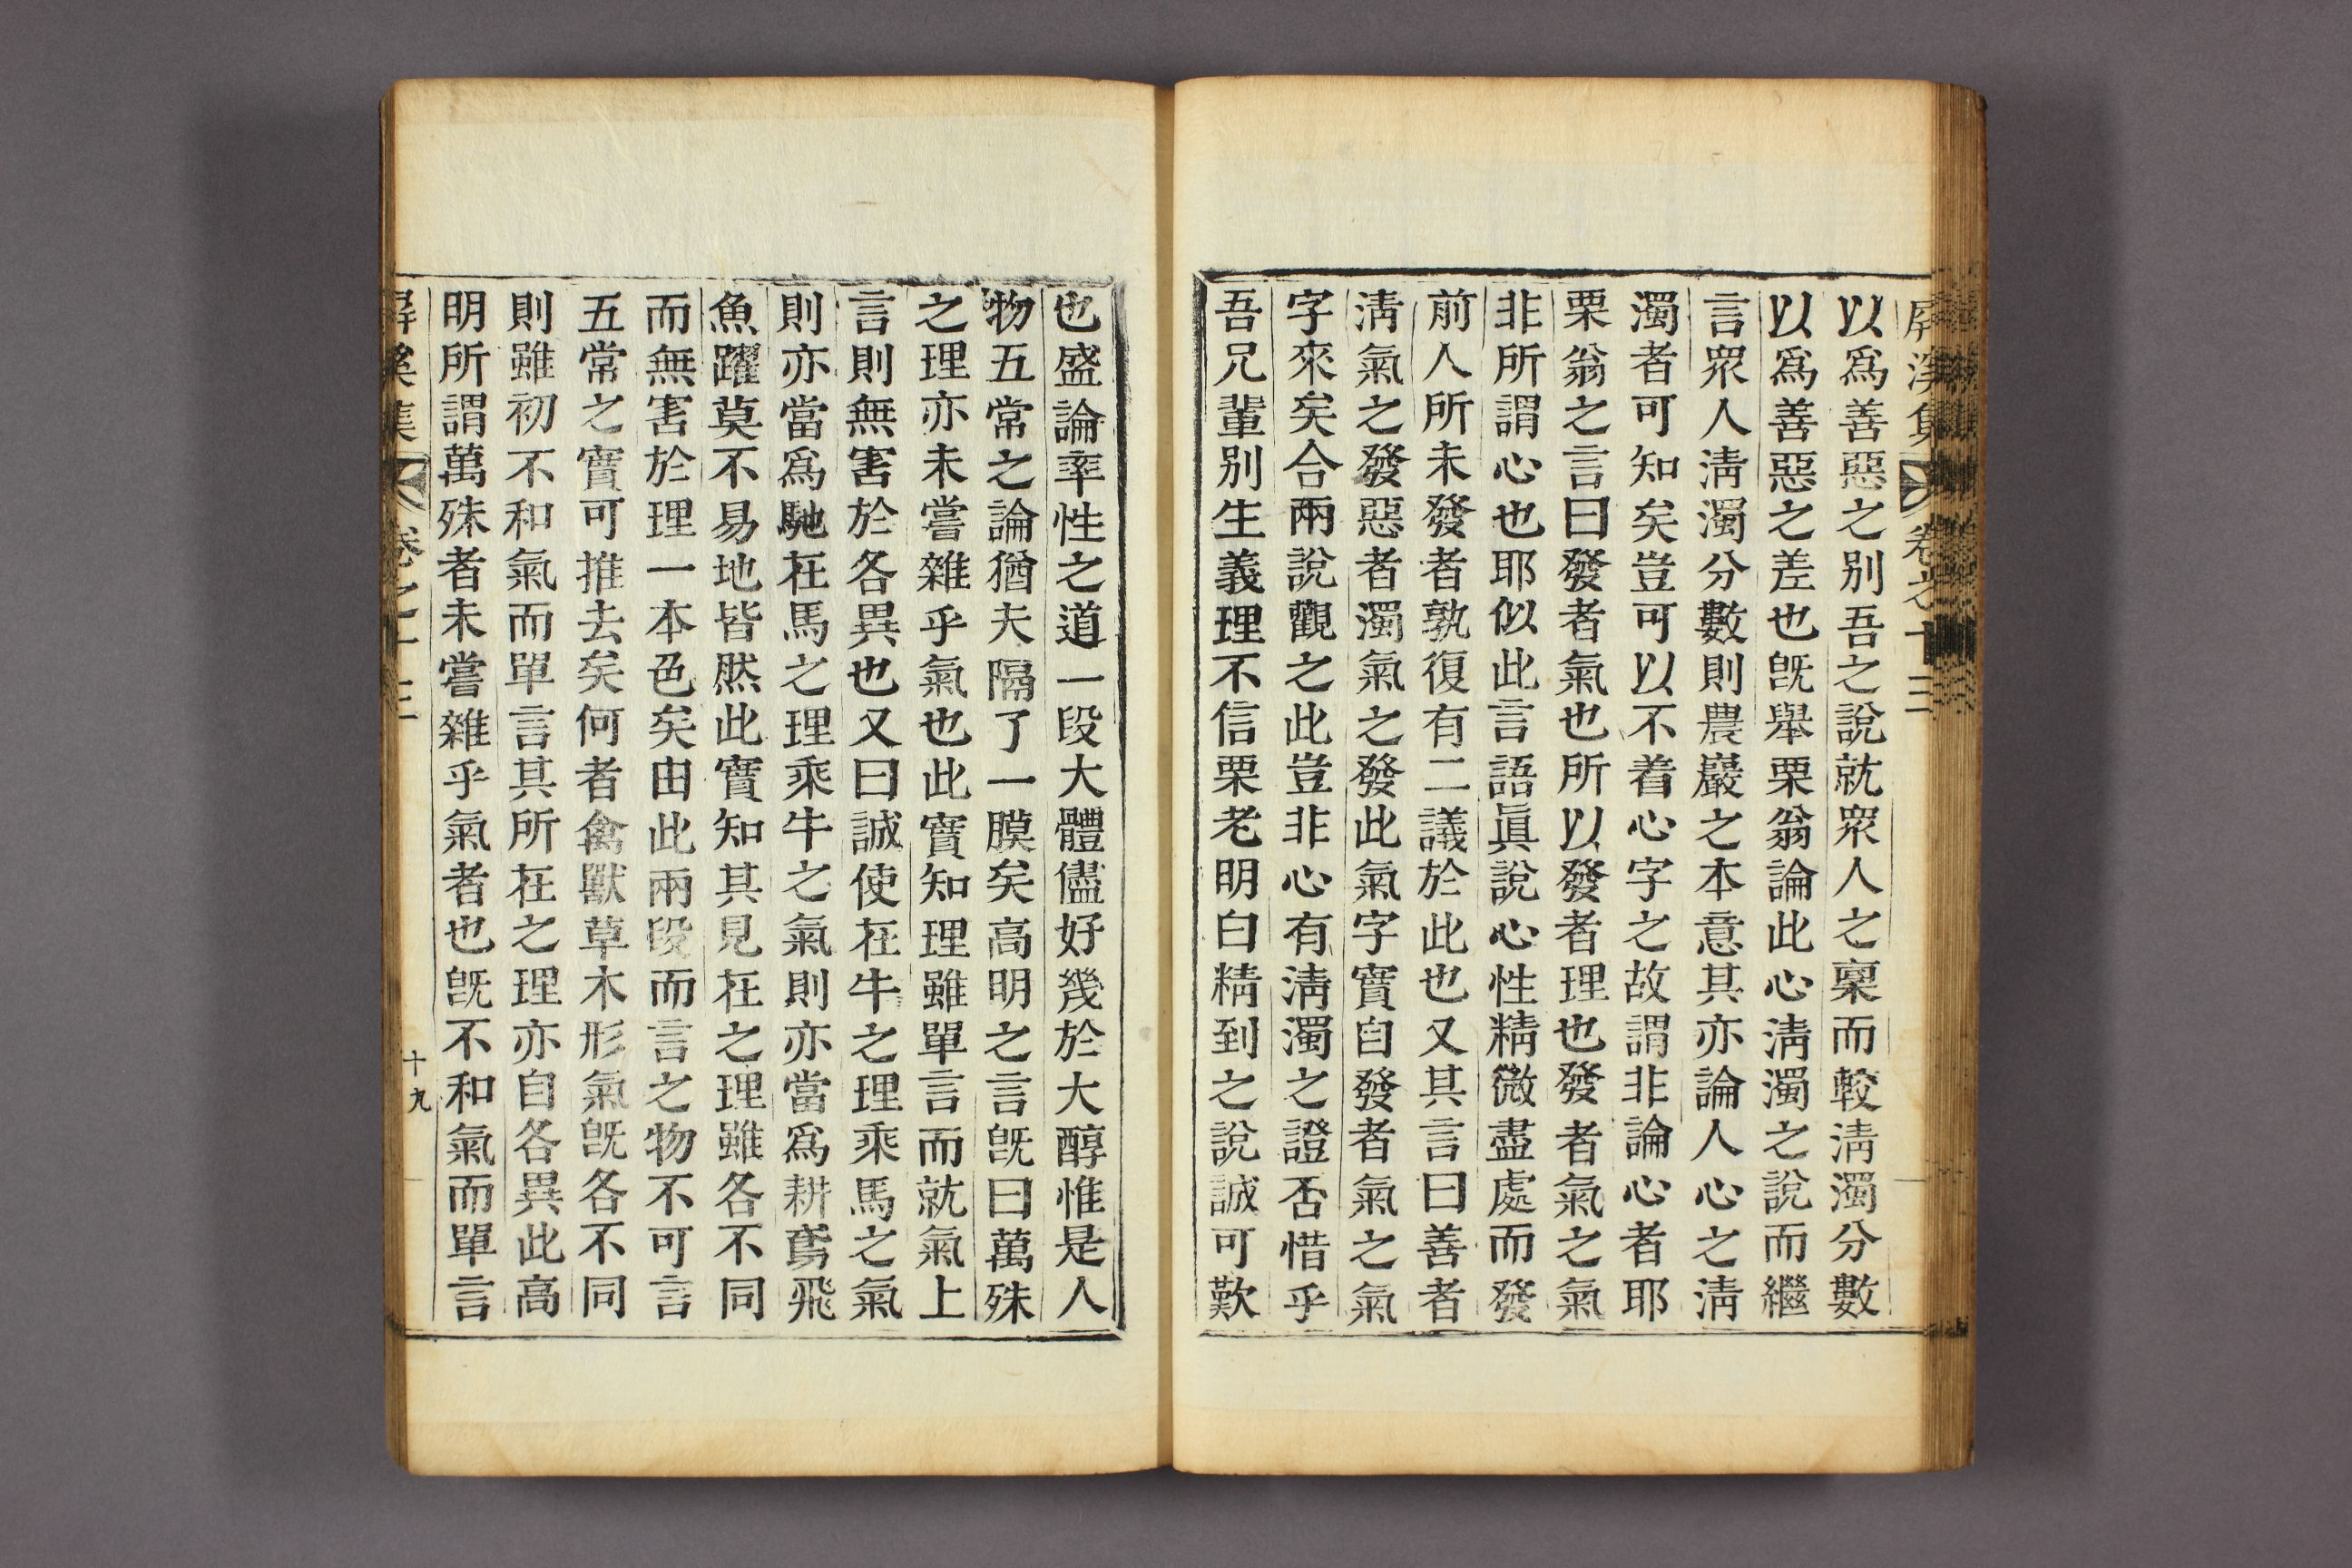 屛溪集 卷之十三
以爲善惡之别吾之說就衆人之稟而較淸濁分數
以爲善惡之差也旣舉栗翁論此心淸濁之說而繼
言衆人淸濁分數則農巖之本意其亦論人心之淸
濁者可知矣豈可以不着心字之故謂非論心者耶
栗翁之言曰發者氣也所以發者理也發者氣之氣
非所謂心也耶似此言語眞說心性精微盡處而發
前人所未發者孰復有二議於此也又其言曰善者
淸氣之發惡者濁氣之發此氣字實自發者氣之氣
字來矣合兩說觀之此豈非心有淸濁之證否惜乎
吾兄輩别生義理不信栗老明白精到之說誠可歎
也盛論率性之道一段大體儘好幾於大醇惟是人
物五常之論猶夫隔了一膜矣高明之言旣曰萬殊
之理亦未嘗雜乎氣也此實知理雖單言而就氣上
言則無害於各異也又曰誠使在牛之理乘馬之氣
則亦當爲馳在馬之理乘牛之氣則亦當爲耕鳶飛
魚躍莫不易地皆然此實知其見在之理雖各不同
而無害於理一本色矣由此兩段而言之物不可言
五常之實可推去矣何者禽獸草木形氣旣各不同
則雖初不和氣而單言其所在之理亦自各異此高
明所謂萬殊者未嘗雜乎氣者也旣不和氣而單言
屛溪集 卷之十三 十九